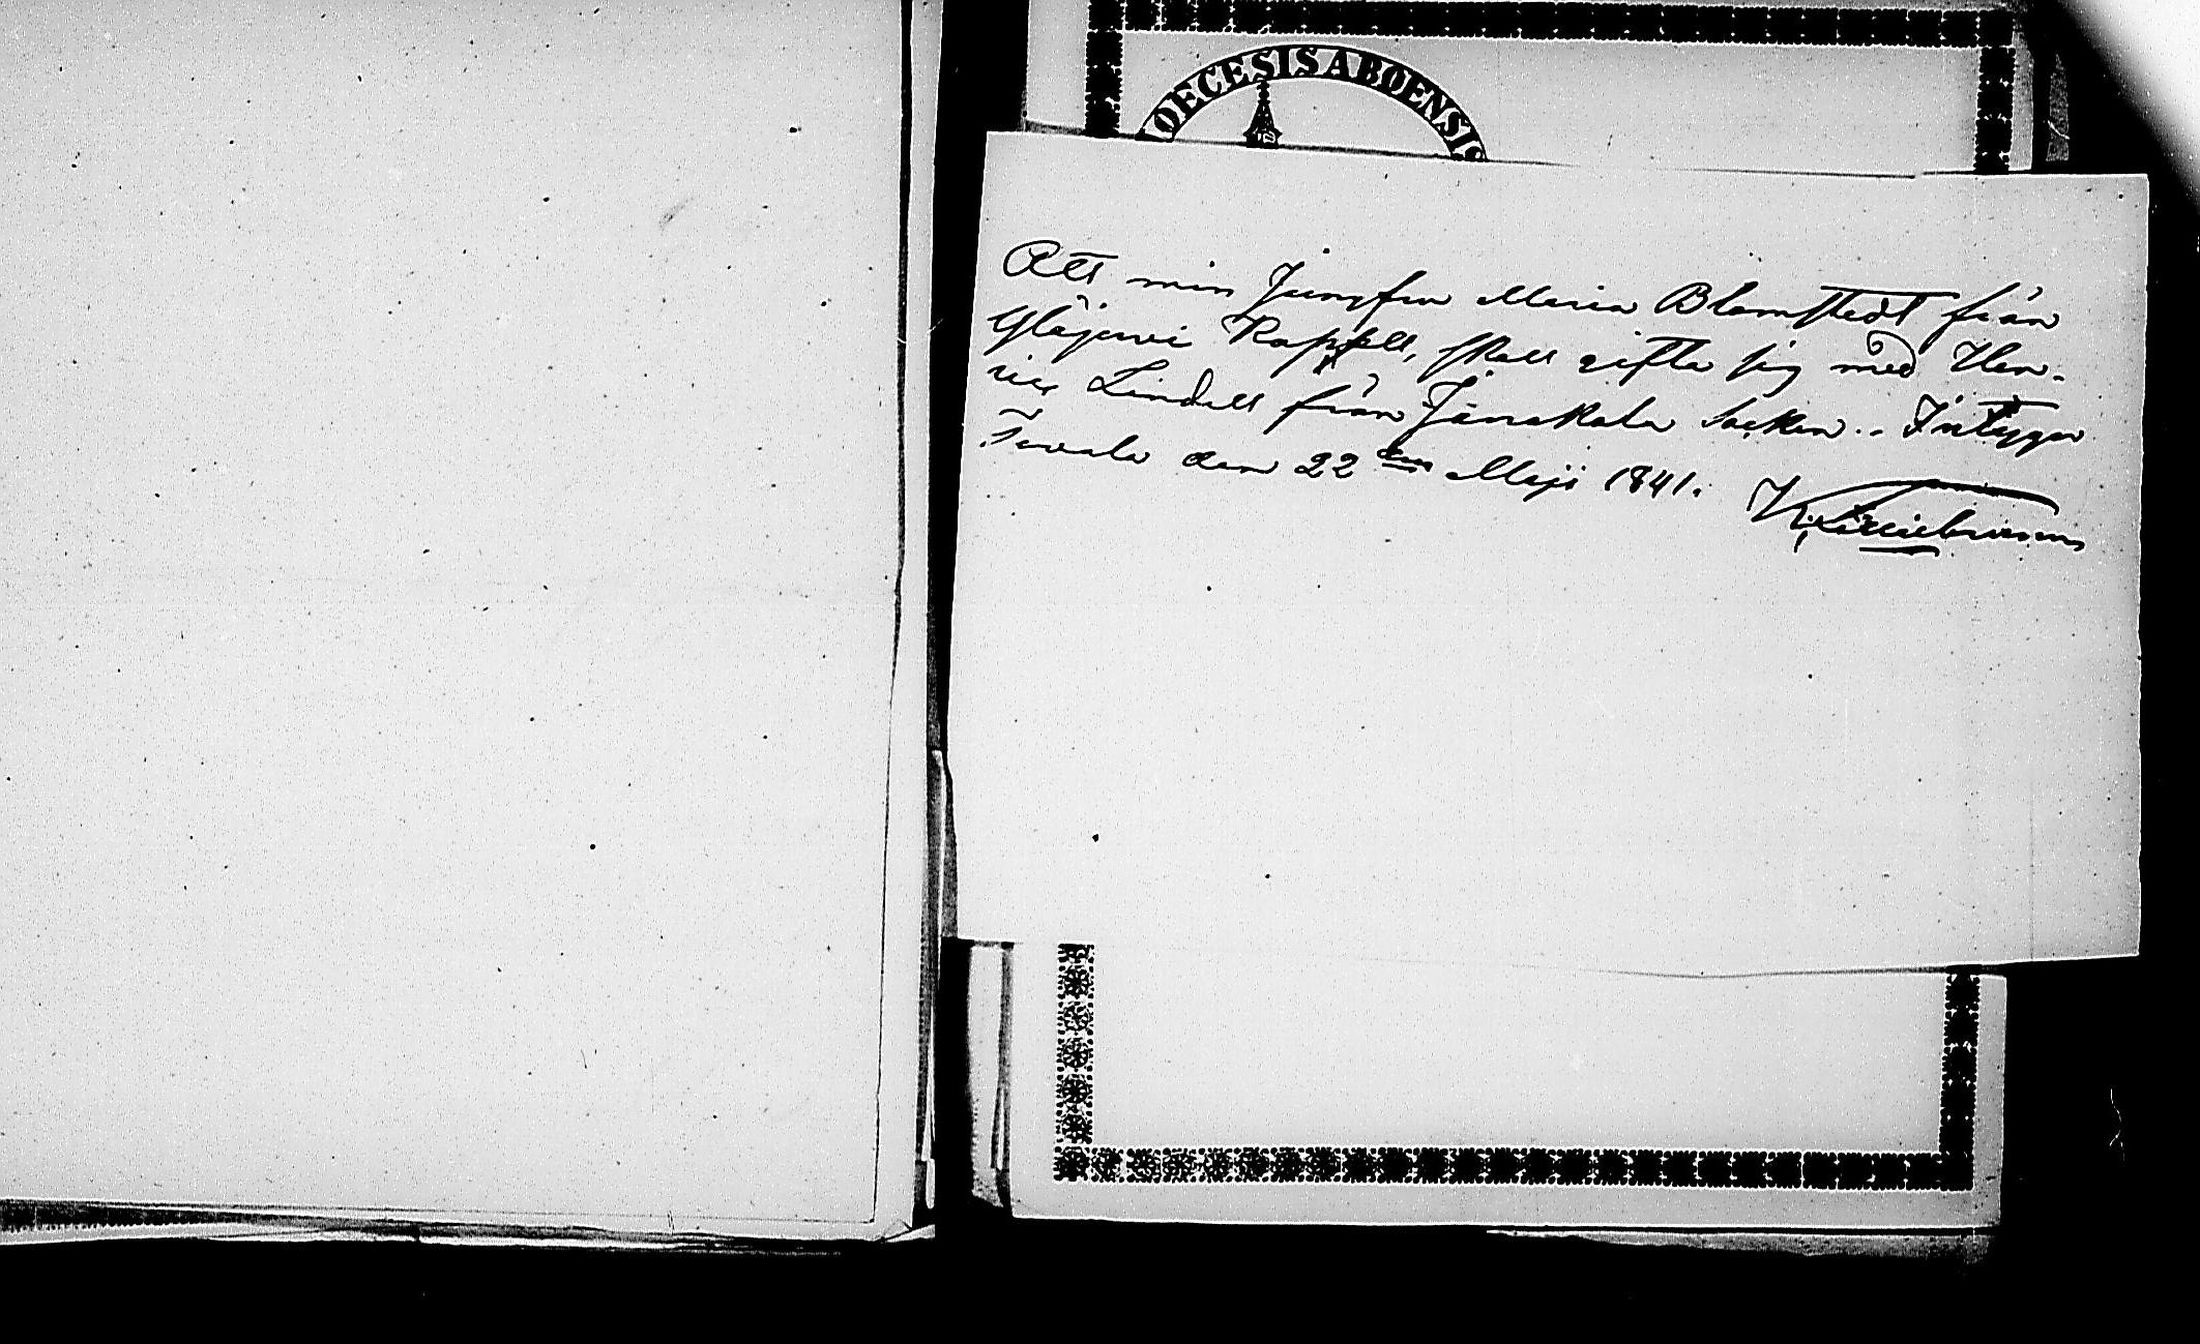 OECESIS ABOENSIS
Att min Jungfru Maria Blomstedt från
Ylöjerwi Kappell, skall gifta sig med Hen-
ric Lindell från Janakala Socken.. Intygar
den 22 den Maji 1841.